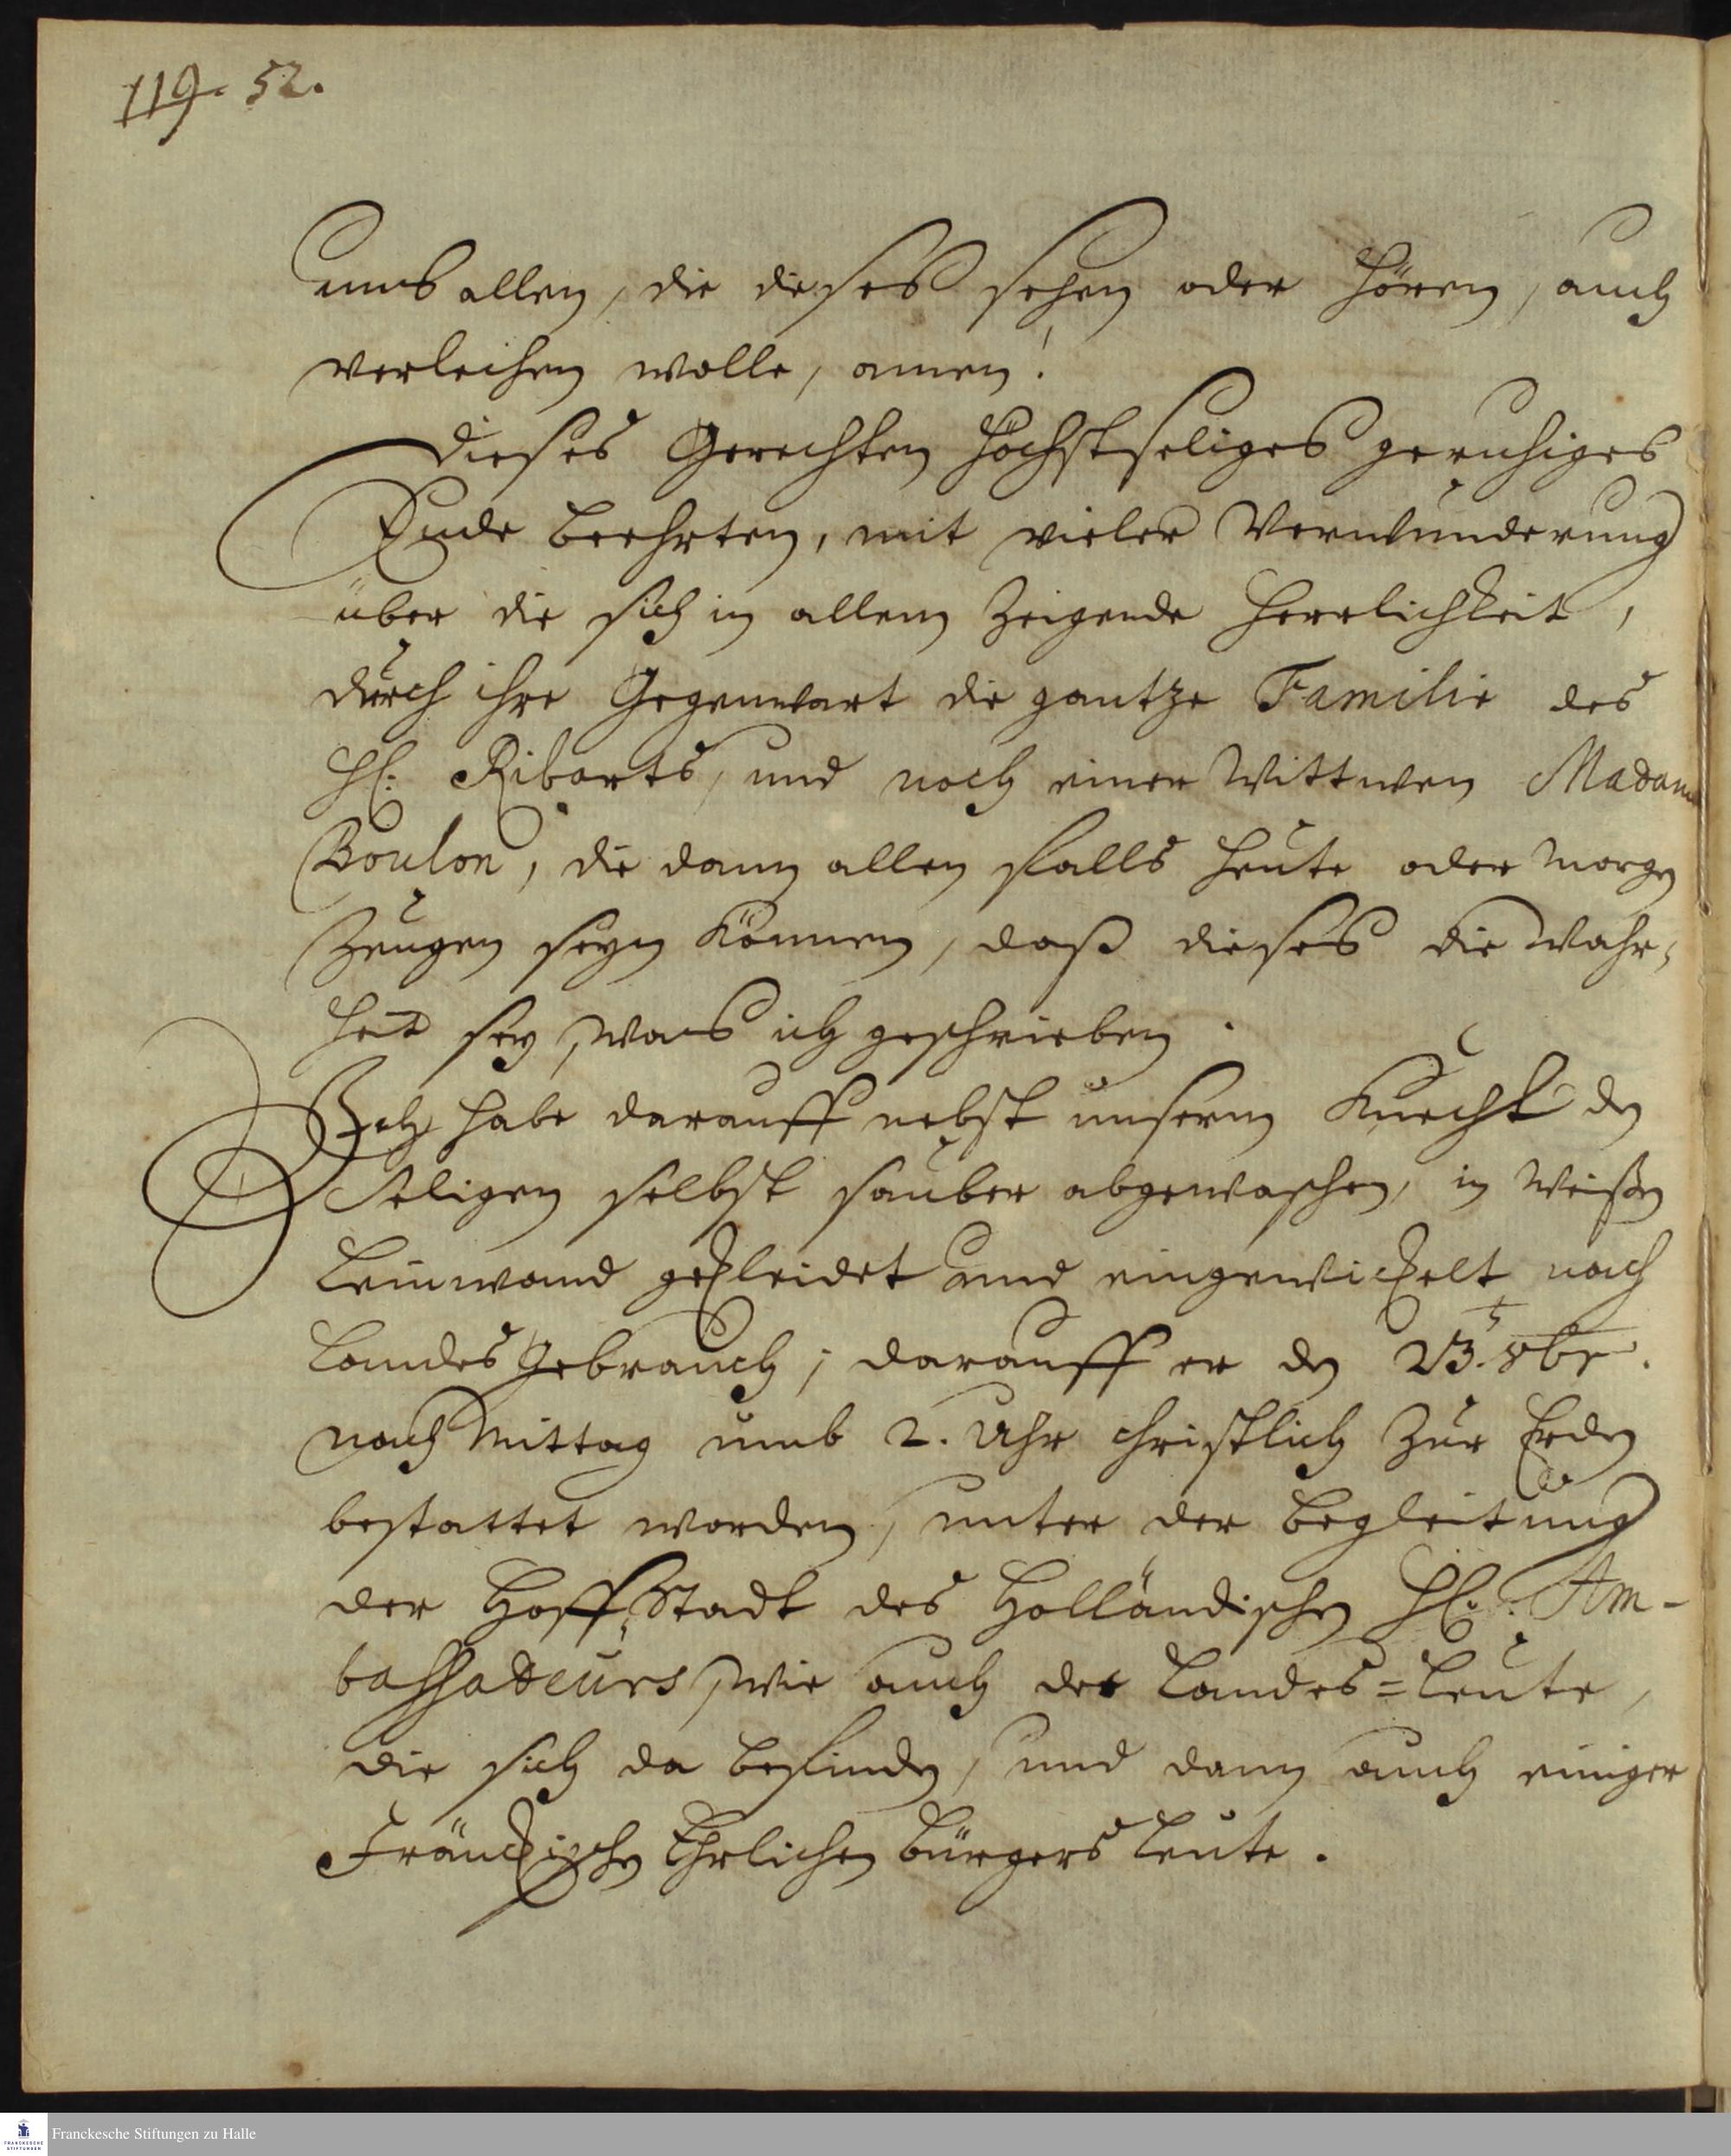 119. 52.
uns allen, die dieses sehen oder hören, auch
verleihen wolle, amen!
Dieses Gerechten höchstseliges geruhiges
Ende beehrten, mit vieler Verwunderung
über die sich in allem zeigende Herrlichkeit,
durch ihre Gegenwart die gantze Familie des
H. Ribarts, und noch einer Wittwen Madam
Boulon, die dann allen falls heute oder morgen
Zeugen seyn können, daß dieses die Wahr-
heit sey, was ich geschrieben.
Ich habe darauff nebst unserm Knecht den
Seligen selbst sauber abgewaschen, in weißen
Leinwand gekleidet und eingewickelt nach
Landes Gebrauch; darauff er den 23. 8br.
nach Mittag umb 2. Uhr christlich zur Erden
bestattet worden, unter der Begleitung
der Hoff-Stadt des Holländischen H. Am-
bassadeurs, wie auch der Landes=Leute,
die sich da befinden, und dann auch einiger
Fränckischen Ehrlichen Bürgers Leute.
Franckesche Stiftungen zu Halle
FRANCKESCHE
STIFTUNGEN